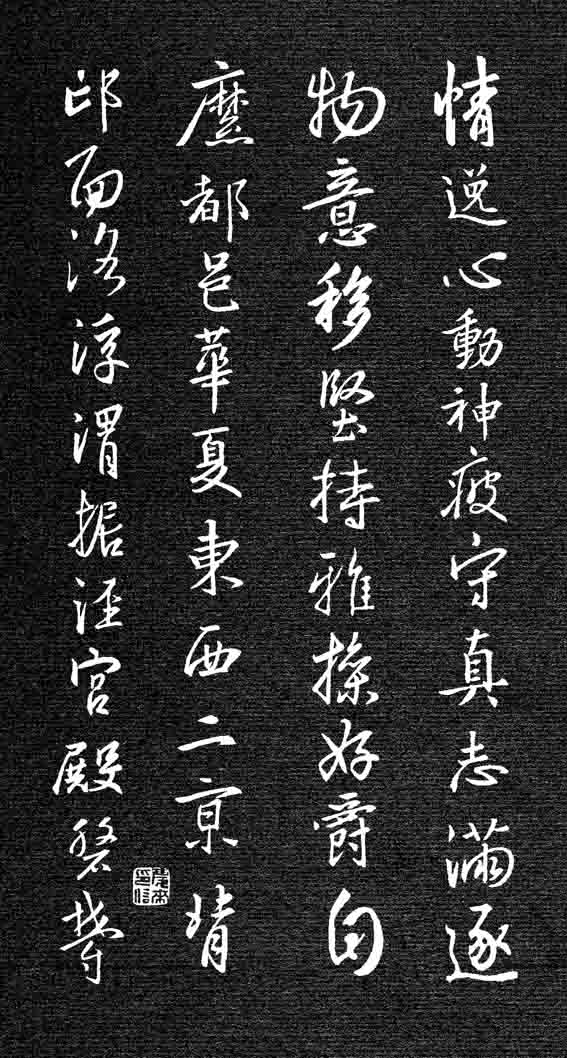 情逸心動神疲守真志滿逐
物意移堅持雅操好爵自
縻都邑華夏東西二京背
邙面洛浮渭据涇宮殿磐鬱